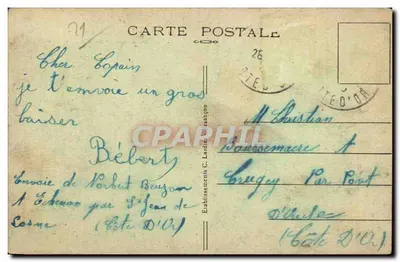 21
CARTE POSTALE
Cher Copain
je t'envoie un gros
baiser
Bébert
Envoie de Norbert
à Echenon par St Jean de
Losne (Côte D'Or)
Etablissements C. Lardier
CPARHIL
28
TE D'OR
M Christian
à
Crugey Par Pont
D'Ouche
(Côte D'Or)